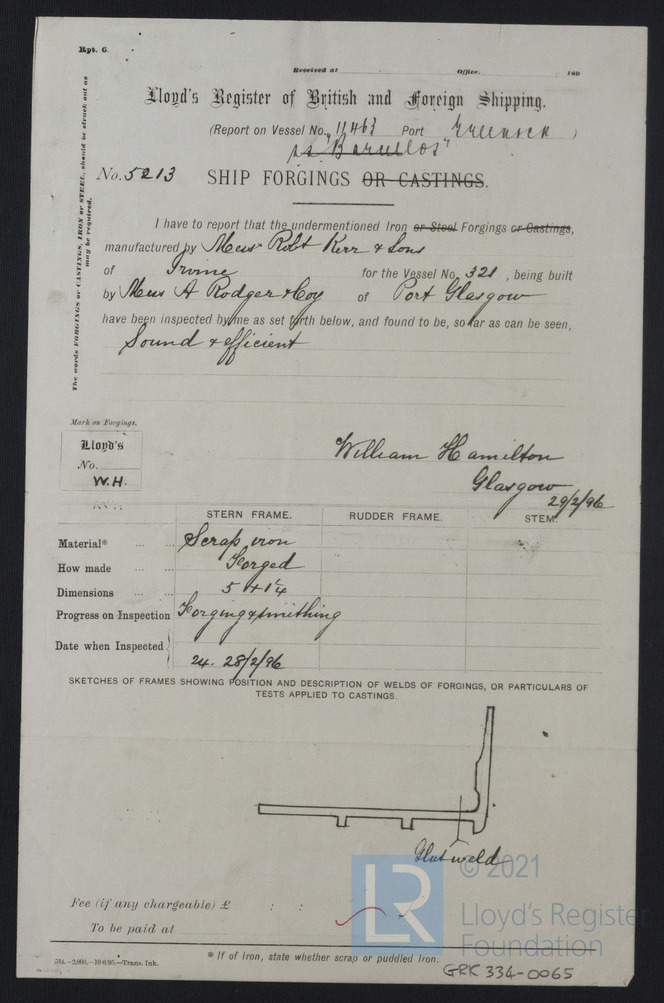 Rpt. 6.
Received at Office, 189
Lloyd's Register of British and Foreign Shipping.
(Report on Vessel No. 11463 Port Greenock )
ss "Barcelos"
No. 5213 SHIP FORGINGS OR CASTINGS.
The words FORGINGS or CASTINGS, IRON or STEEL, should be struck out as may be required.
I have to report that the undermentioned Iron or Steel Forgings or Castings,
manufactured by Mess Robt Kerr & Sons
of Irvine for the Vessel No. 321, being built
by Mess A Rodger & Coy of Port Glasgow
have been inspected by me as set forth below, and found to be, so far as can be seen,
Sound & efficient
Mark on Forgings.
Lloyd's
No.
W.H.
William Hamilton
Glasgow
29/2/96
STERN FRAME. RUDDER FRAME. STEM.
Material* Scrap iron
How made Forged
Dimensions 5 + 1¼
Progress on Inspection Forging & smithing
Date when Inspected 24. 28/2/96
SKETCHES OF FRAMES SHOWING POSITION AND DESCRIPTION OF WELDS OF FORGINGS, OR PARTICULARS OF
TESTS APPLIED TO CASTINGS.
Glut weld
Fee (if any chargeable) £ : :
To be paid at
* If of Iron, state whether scrap or puddled Iron.
534.—2,000.—19/6/95.—Trans. Ink.
GRK 334-0065
LR
© 2021
Lloyd's Register
Foundation